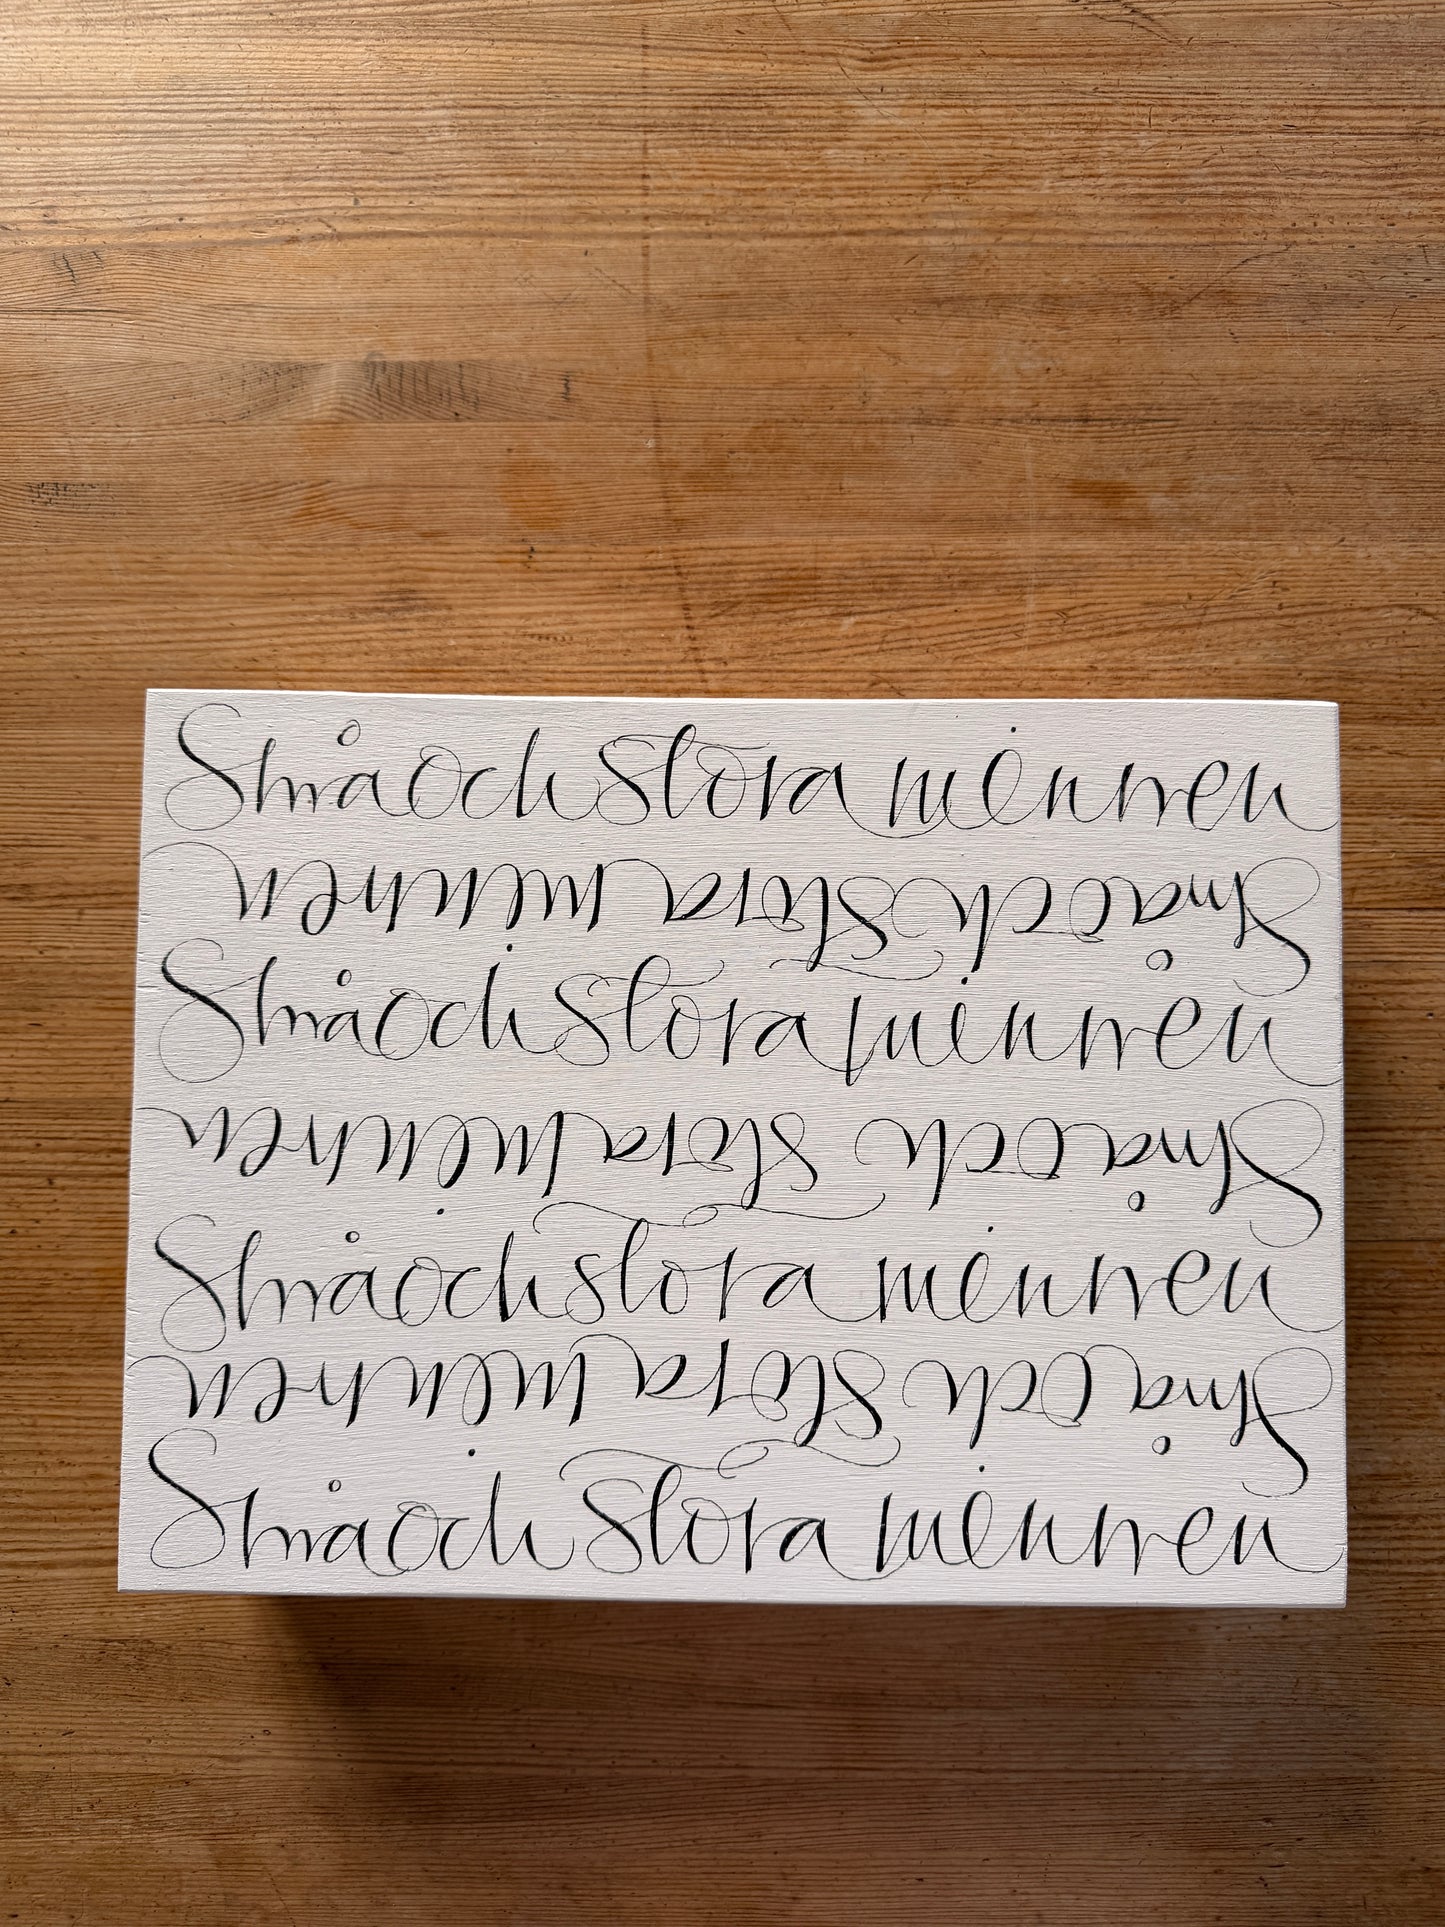 Små och stora minnen
Små och stora minnen
Små och stora minnen
Små och stora minnen
Små och stora minnen
Små och stora minnen
Små och stora minnen